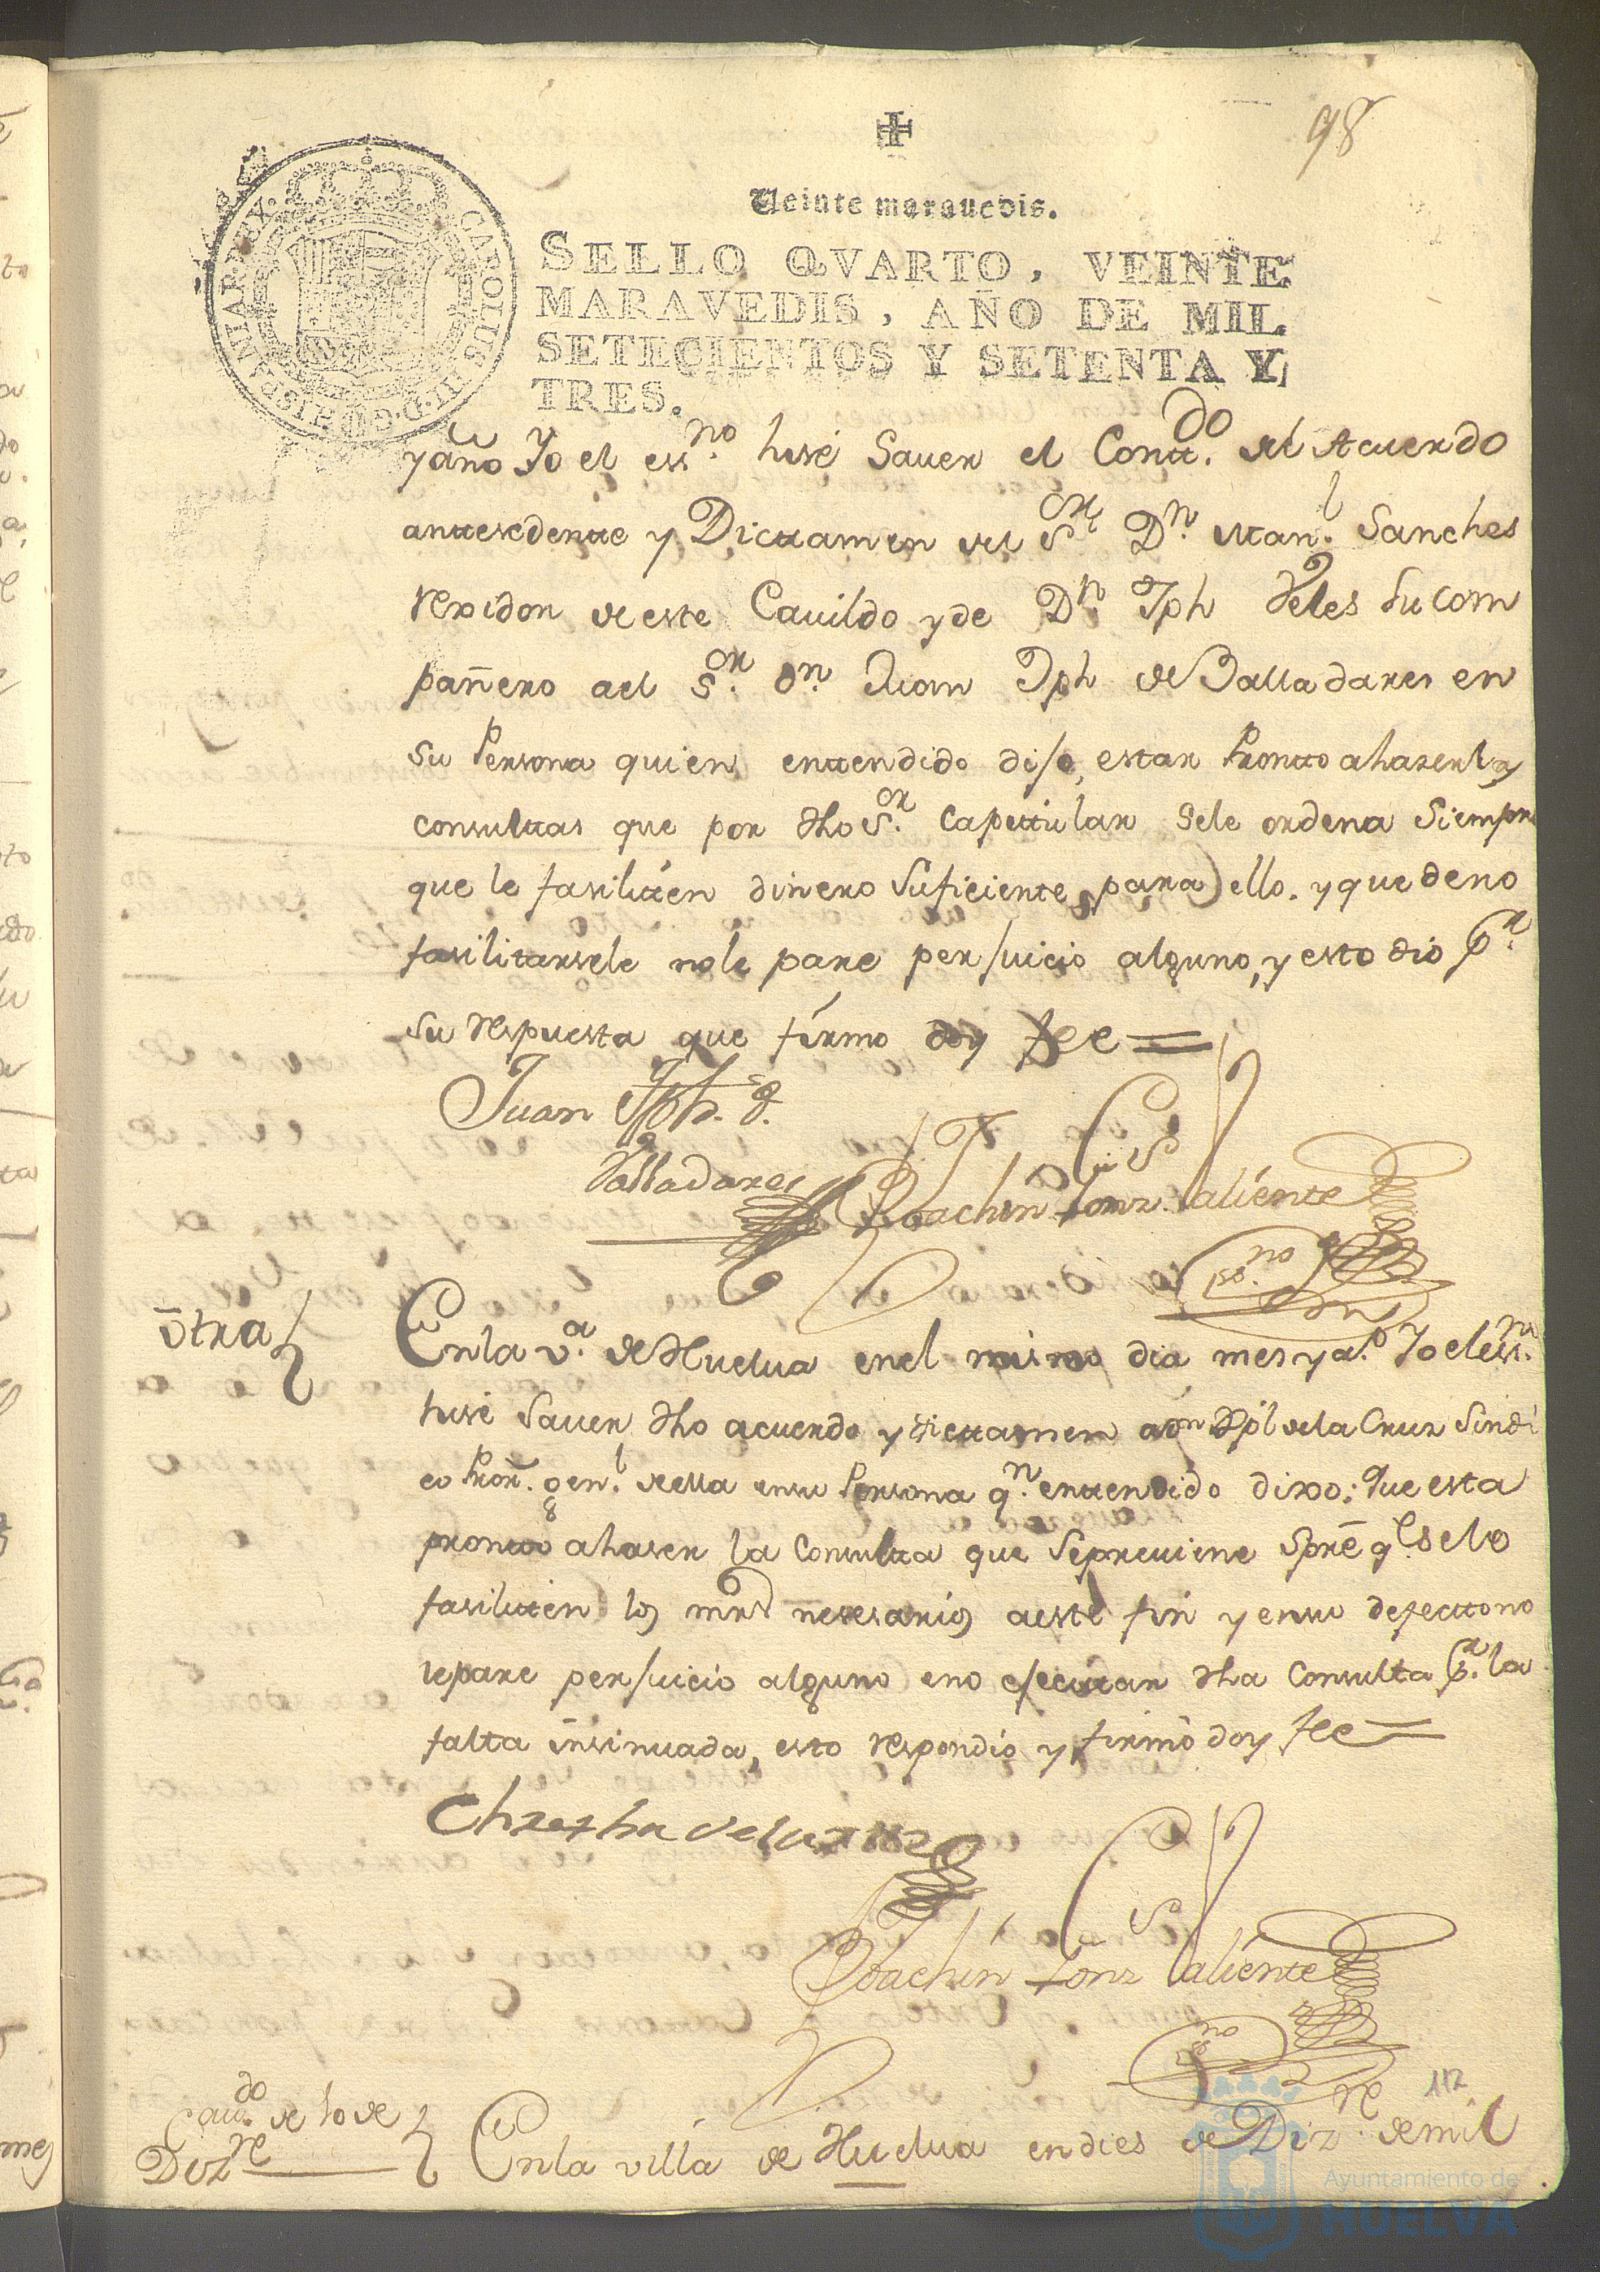 98
Veinte marauedis.
SELLO QVARTO, VEINTE
MARAVEDIS, AÑO DE MIL
SETECIENTOS Y SETENTA Y
TRES.
CAROLUS III D. G. HISPANIAR. REX.
y año Yo el essno. hisé Sauer el Contdo. del Acuerdo
antesedente y Dictamen del Sor. Dn. Manl. Sanches
rexidor de este Cauildo y de Dn. Jph Veles su com
pañero a el Sor. dn. Juan Jph de Balladares en
su Persona quien entendido dijo, estar Pronto a haser las
consultas que por dho Sor. Capitular se le ordena siempre
que le fasiliten dinero suficiente para ello. y que de no
fasilitarsele no le pare perjuicio alguno, y esto dio pa.
su respuesta que firmo doy fee =
Juan Jph. d.
Valladares
Joachin Gonz. Caliente
essno.
otra
En la va. de Huelua en el mismo dia mes y ao. Yo el essno.
hisé sauer dho acuerdo y dictamen a dn Xpl de la Cruz Sindi
co Pror. genl. de ella en su Persona qn. entendido dixo: Que esta
pronto a haser la consulta que se preuiene spre. qe. se le
fasiliten los mrs nesesarios a este fin y en su defecto no
le pare perjuicio alguno en o ejecutar dha consulta pr. la
falta insinuada, esto respondio y firmó doy fee =
de la cruz
Joachin Gonz Caliente
essno.
Caudo. de 10 de
Dizre
En la villa de Huelua en dies de Dizre. de mil
112
Ayuntamiento de
HUELVA